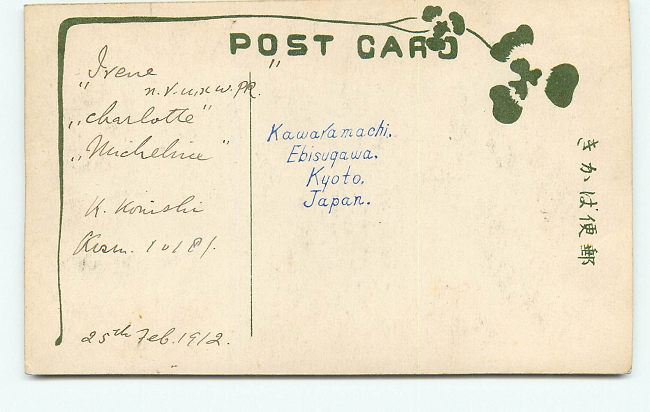 POST CARD
"Irene "
n.v.u.x w. PR.
„Charlotte"
„Micheline"
K. Konishi
25th Feb. 1912.
Kawaramachi.
Ebisugawa.
Kyoto.
Japan.
きかば便郵